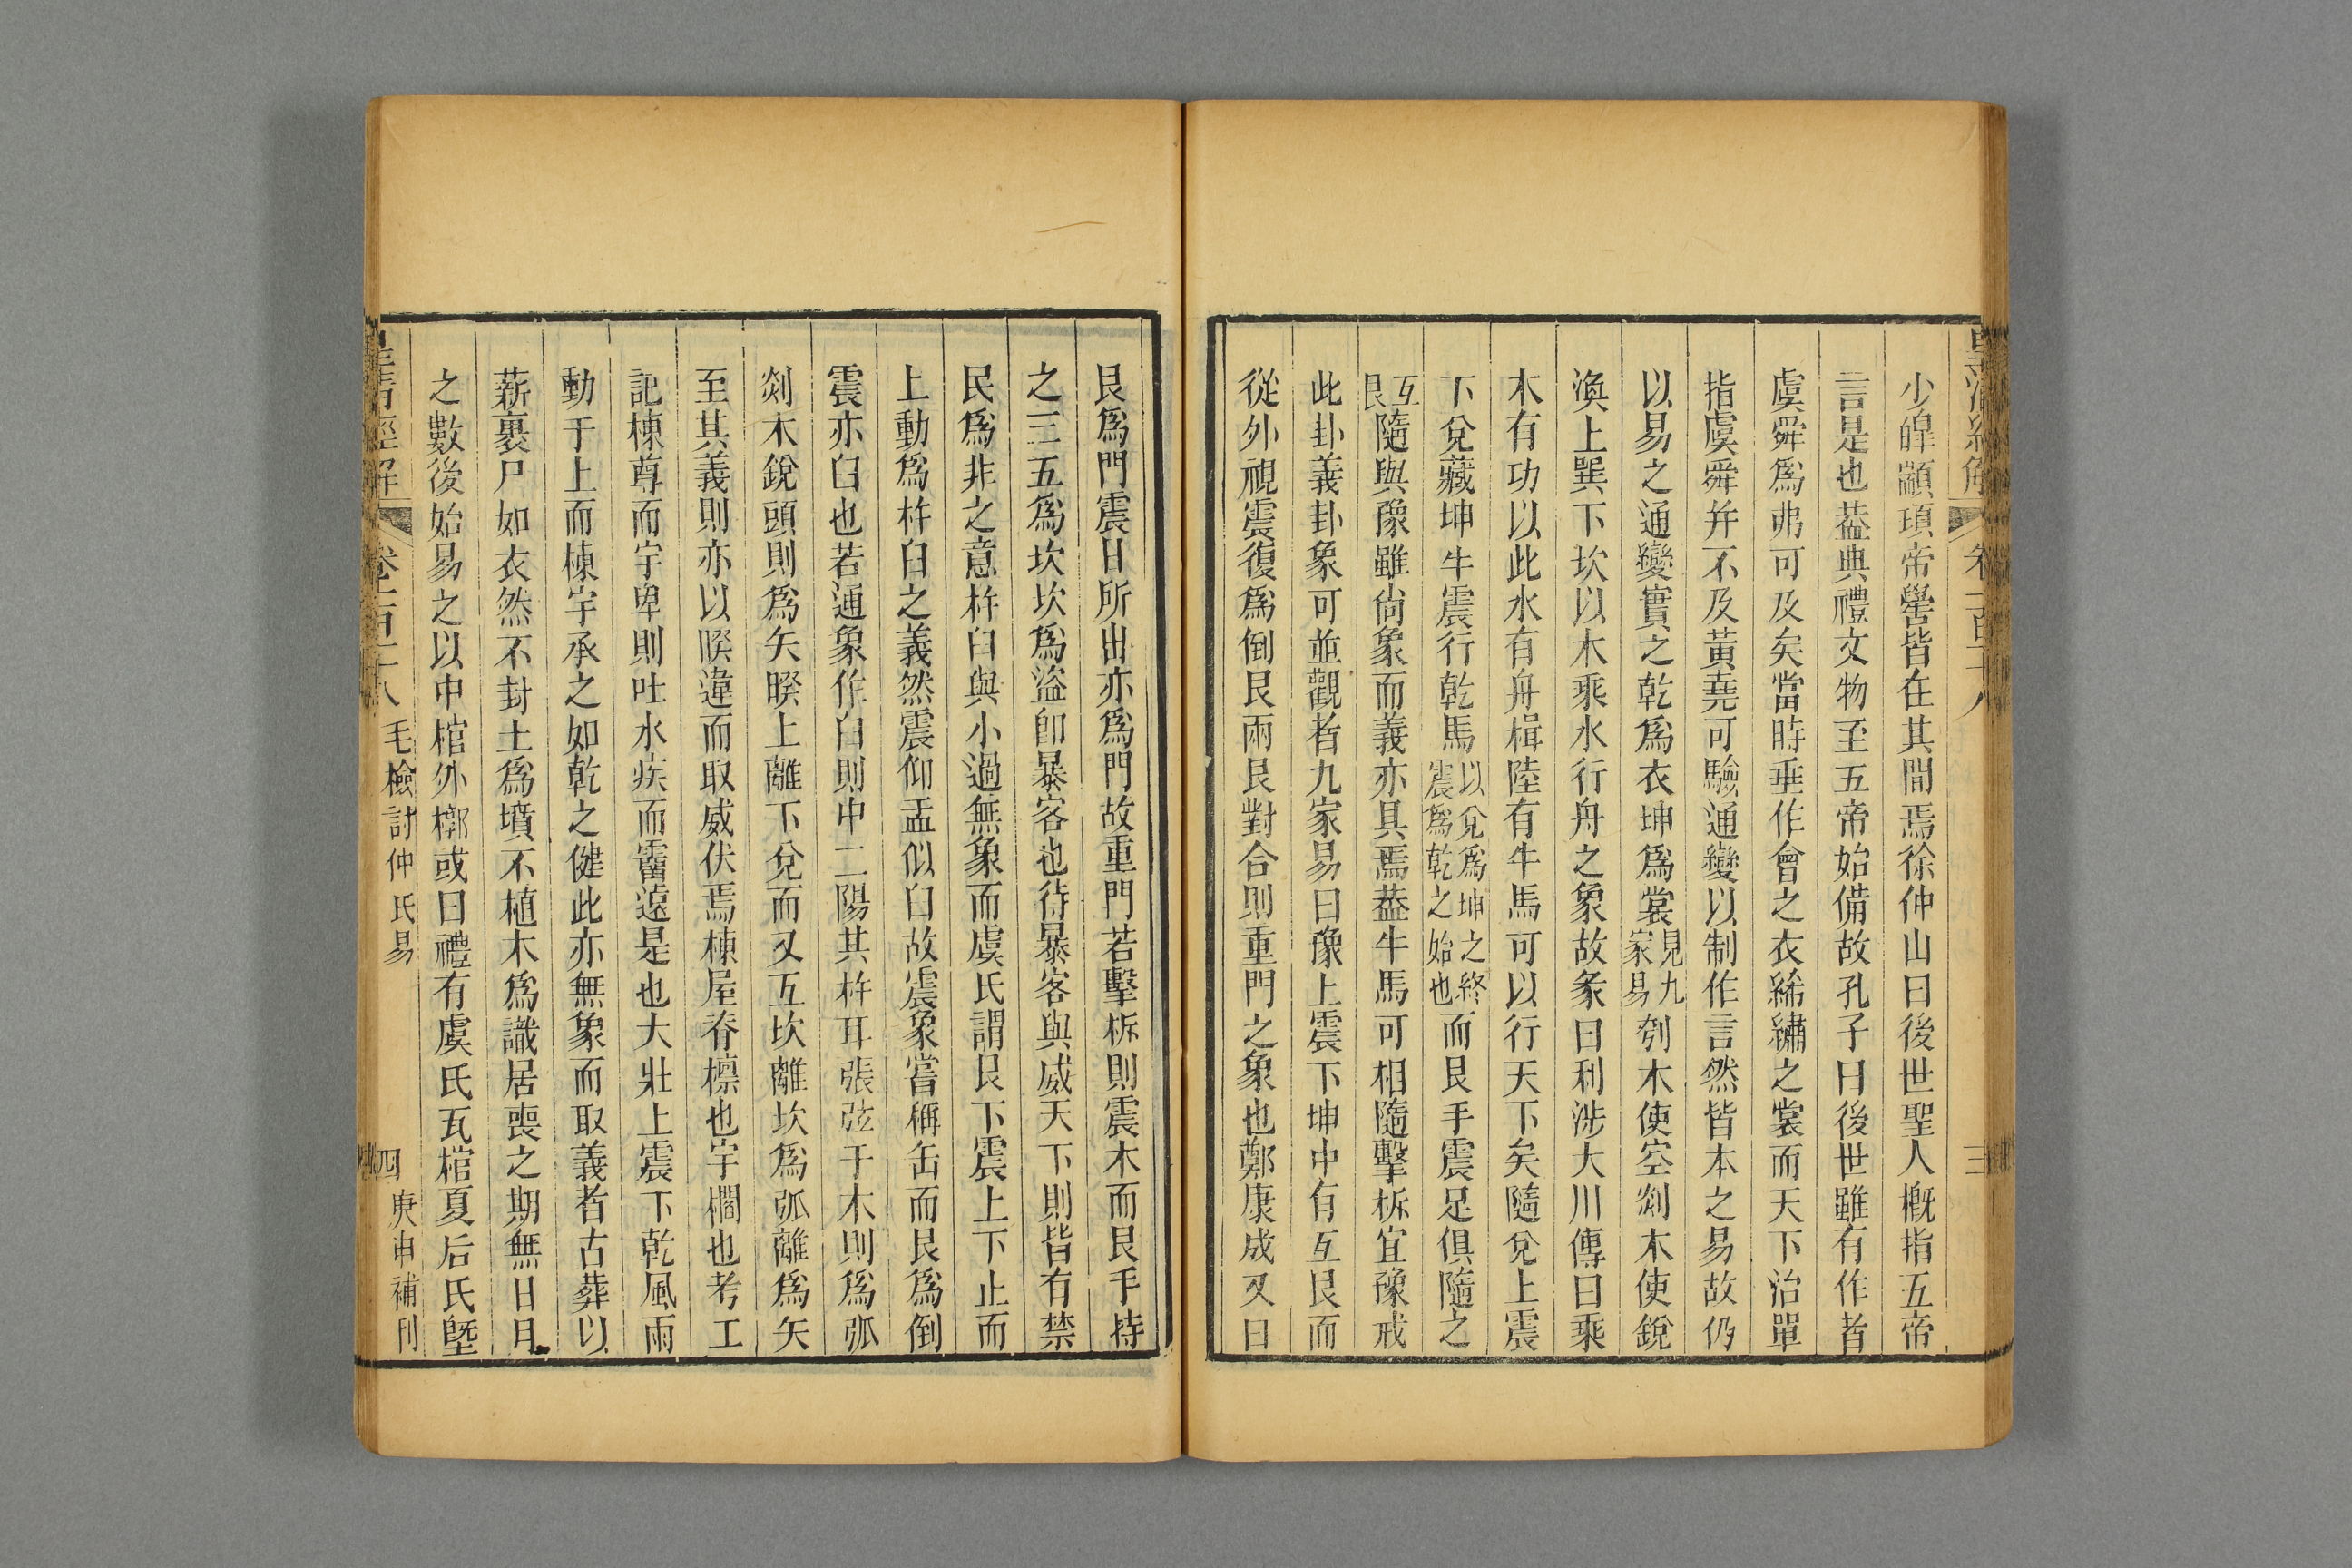 皇清經解 卷一百十八 三
少皥顓頊帝嚳皆在其間焉徐仲山曰後世聖人槪指五帝
言是也葢典禮文物至五帝始備故孔子曰後世雖有作者
虞舜爲弗可及矣當時垂作會之衣絺繡之裳而天下治單
指虞舜幷不及黃堯可驗通變以制作言然皆本之易故仍
以易之通變實之乾爲衣坤爲裳見九家易刳木使空剡木使銳
渙上巽下坎以木乘水行舟之象故彖曰利涉大川傳曰乘
木有功以此水有舟楫陸有牛馬可以行天下矣隨兌上震
下兌藏坤牛震行乾馬以兌爲坤之終震爲乾之始也而艮手震足俱隨之
互艮隨與豫雖尙象而義亦具焉葢牛馬可相隨擊柝宜豫戒
此卦義卦象可並觀者九家易曰豫上震下坤中有互艮而
從外視震復爲倒艮兩艮對合則重門之象也鄭康成又曰
艮爲門震日所出亦爲門故重門若擊柝則震木而艮手持
之三五爲坎坎爲盜卽暴客也待暴客與威天下則皆有禁
民爲非之意杵臼與小過無象而虞氏謂艮下震上下止而
上動爲杵臼之義然震仰盂似臼故震象嘗稱缶而艮爲倒
震亦臼也若通象作臼則中二陽其杵耳張弦于木則爲弧
剡木銳頭則爲矢睽上離下兌而又互坎離坎爲弧離爲矢
至其義則亦以睽違而取威伏焉棟屋脊檩也宇櫩也考工
記棟尊而宇卑則吐水疾而霤遠是也大壯上震下乾風雨
動于上而棟宇承之如乾之健此亦無象而取義者古葬以
薪裹尸如衣然不封土爲墳不植木爲識居喪之期無日月
之數後始易之以中棺外槨或曰禮有虞氏瓦棺夏后氏堲
皇清經解 卷一百十八 毛檢討仲氏易 四 庚申補刊